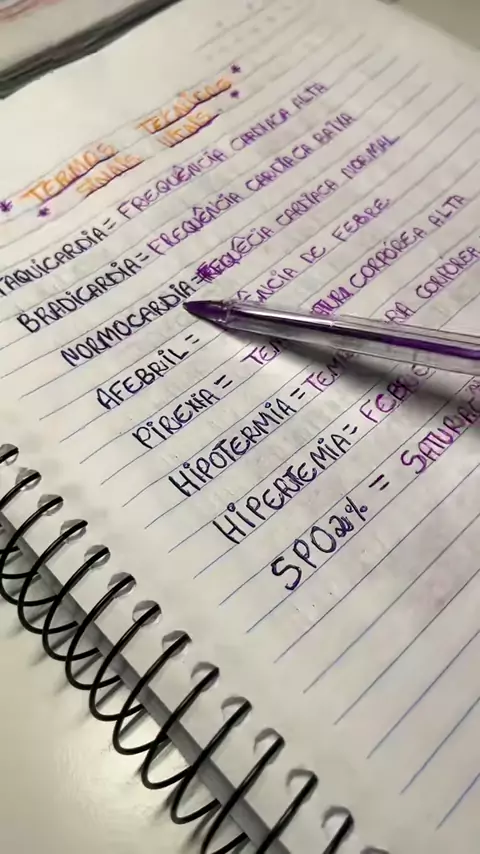 * TERMOS TECNICOS *
* SINAIS VITAIS *
TAQUICARDIA = FREQUÊNCIA CARDIACA ALTA
BRADICARDIA = FREQUÊNCIA CARDIACA BAIXA
NORMOCARDIA = FREQUÊCIA CARDIACA NORMAL
AFEBRIL = ÊNCIA DE FEBRE
PIREXIA = TEM TURA CORPÓREA ALTA
HIPOTERMIA = TEMP RA CORPÓREA
HIPERTEMIA = FEBRE
SPO2% = SATURAÇ